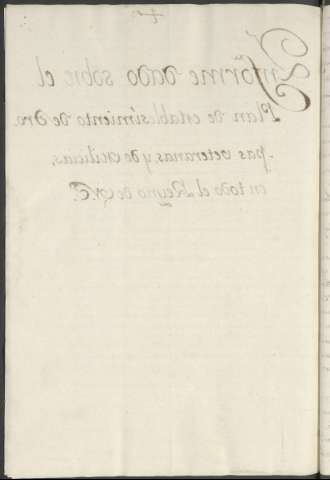 Informe dado sobre el
Plan de establesimiento de tro-
pas veteranas y de Milicias,
en todo el Reyno de N.E.